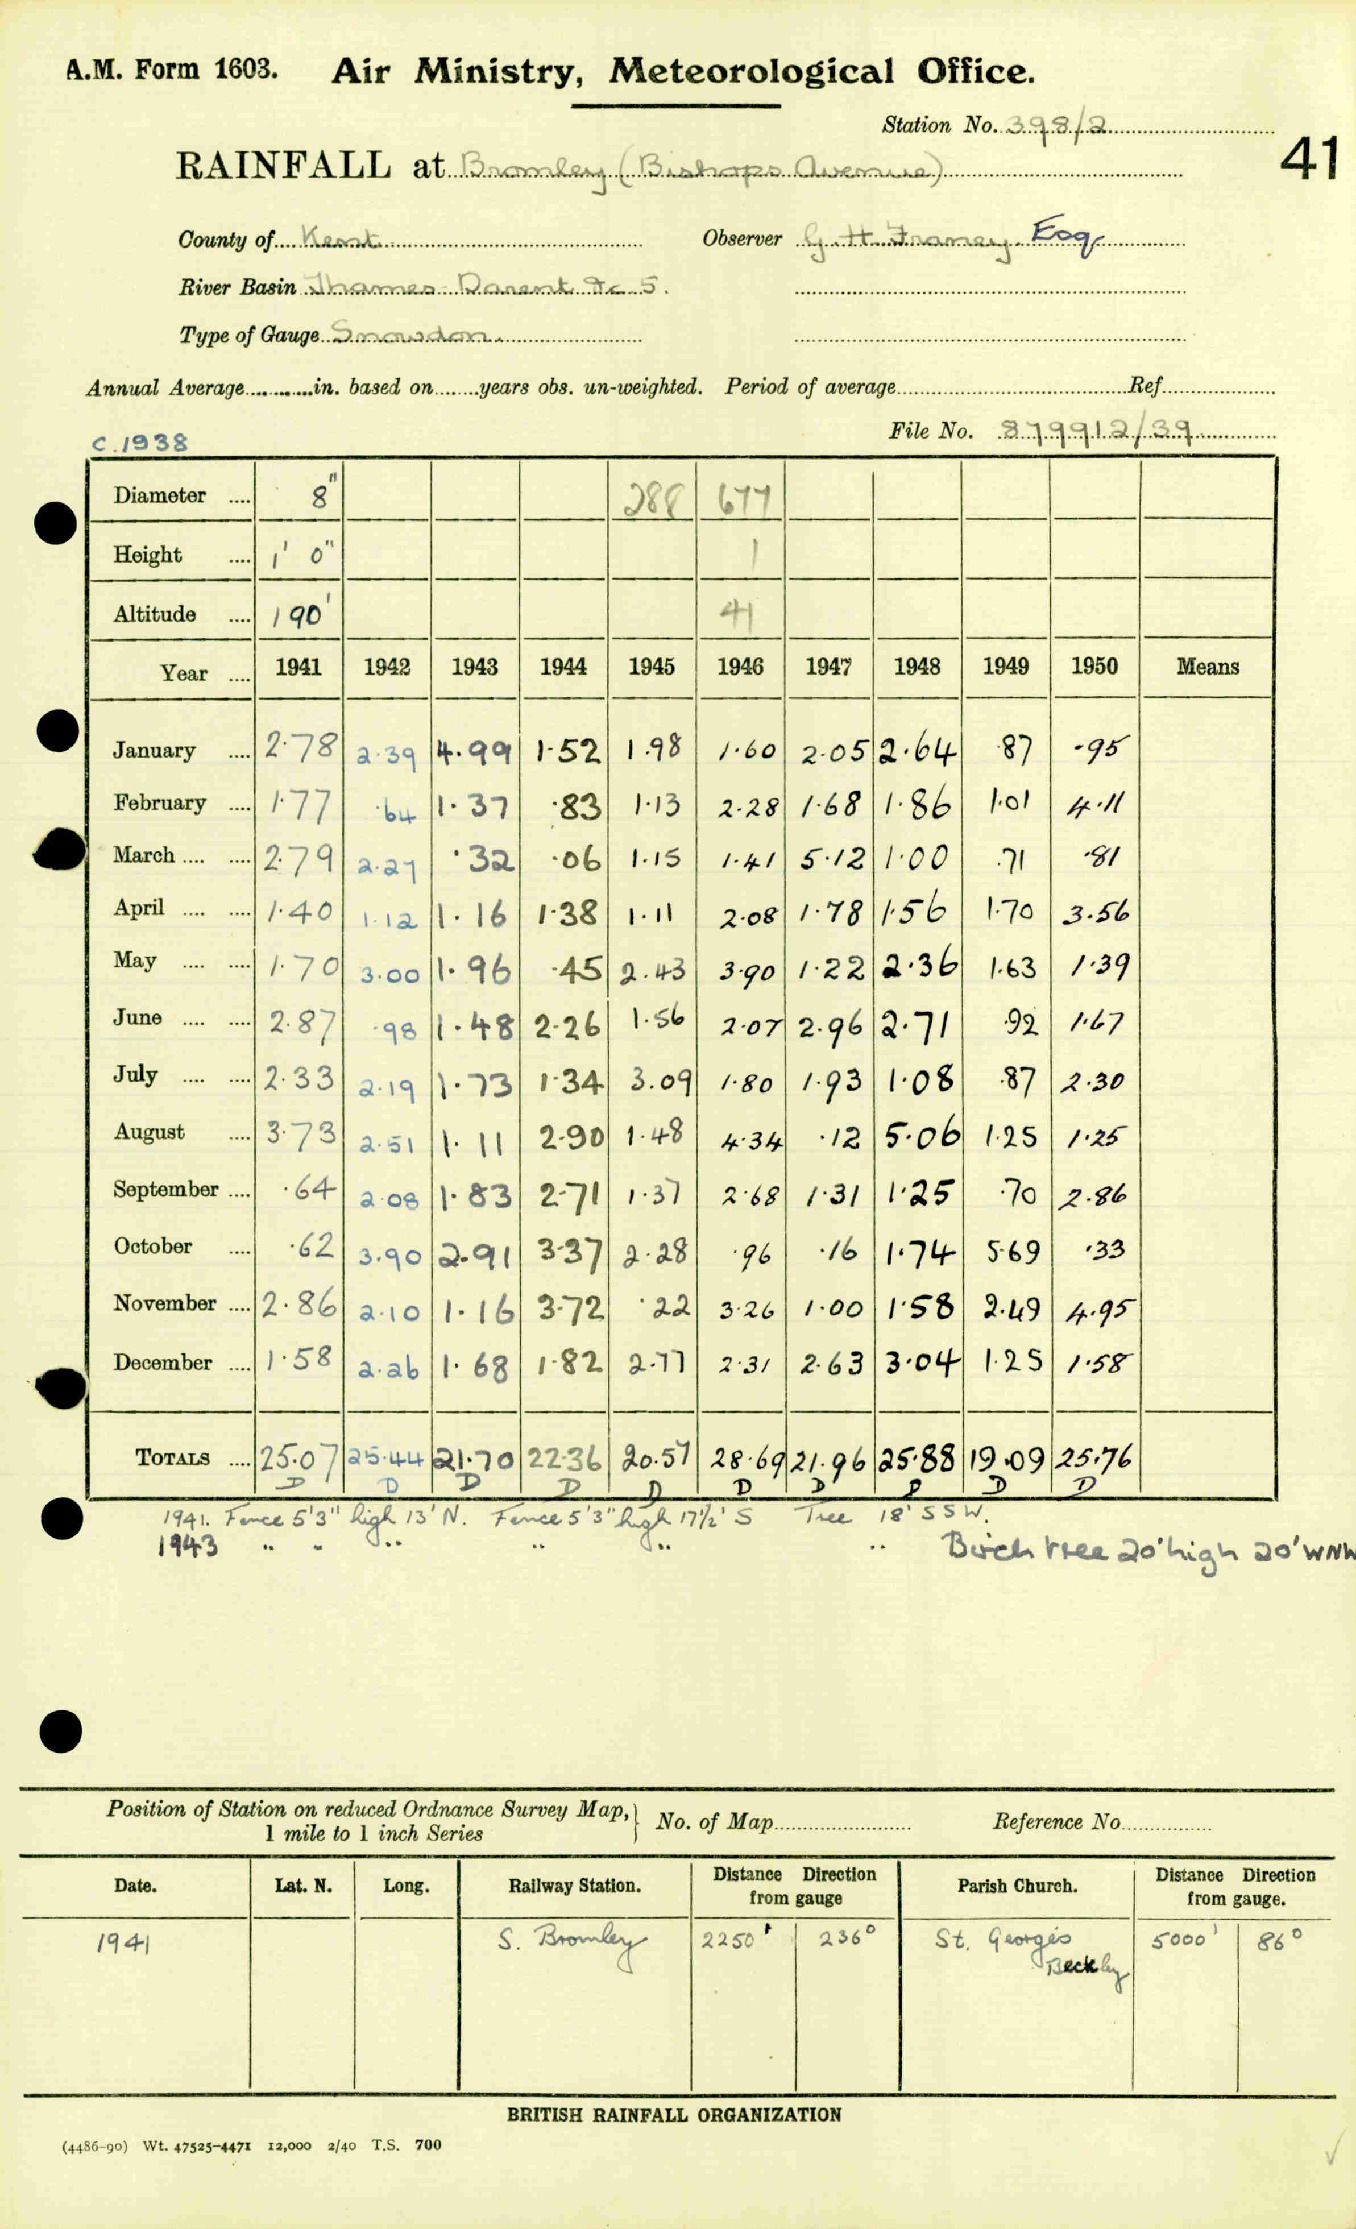 A.M. Form 1603. Air Ministry, Meteorological Office.
Station No. 398/2
41
RAINFALL at Bromley (Bishops Avenue)
County of Kent Observer G. H. Franey Esq
River Basin Thames Darent &c 5.
Type of Gauge Snowdon.
Annual Average in. based on years obs. un-weighted. Period of average Ref
File No. 879912/39
C. 1938
Diameter 8" 288 677
Height 1' 0" 1
Altitude 190' 41
Year 1941 1942 1943 1944 1945 1946 1947 1948 1949 1950 Means
January 2.78 2.39 4.99 1.52 1.98 1.60 2.05 2.64 .87 .95
February 1.77 .64 1.37 .83 1.13 2.28 1.68 1.86 1.01 4.11
March 2.79 2.27 .32 .06 1.15 1.41 5.12 1.00 .71 .81
April 1.40 1.12 1.16 1.38 1.11 2.08 1.78 1.56 1.70 3.56
May 1.70 3.00 1.96 .45 2.43 3.90 1.22 2.36 1.63 1.39
June 2.87 .98 1.48 2.26 1.56 2.07 2.96 2.71 .92 1.67
July 2.33 2.19 1.73 1.34 3.09 1.80 1.93 1.08 .87 2.30
August 3.73 2.51 1.11 2.90 1.48 4.34 .12 5.06 1.25 1.25
September .64 2.08 1.83 2.71 1.37 2.68 1.31 1.25 .70 2.86
October .62 3.90 2.91 3.37 2.28 .96 .16 1.74 5.69 .33
November 2.86 2.10 1.16 3.72 .22 3.26 1.00 1.58 2.49 4.95
December 1.58 2.26 1.68 1.82 2.77 2.31 2.63 3.04 1.25 1.58
TOTALS 25.07 25.44 21.70 22.36 20.57 28.69 21.96 25.88 19.09 25.76
D D D D D D D D D D
1941. Fence 5'3" high 13' N. Fence 5'3" high 17½' S Tree 18' SSW.
1943 " " " " " " Birch tree 20' high 20' WNW
Position of Station on reduced Ordnance Survey Map, 1 mile to 1 inch Series } No. of Map Reference No.
Date. Lat. N. Long. Railway Station. Distance Direction from gauge Parish Church. Distance Direction from gauge.
1941 S. Bromley 2250' 236° St. Georges 5000' 86°
BRITISH RAINFALL ORGANIZATION
(4486-90) Wt. 47525-4471 12,000 2/40 T.S. 700